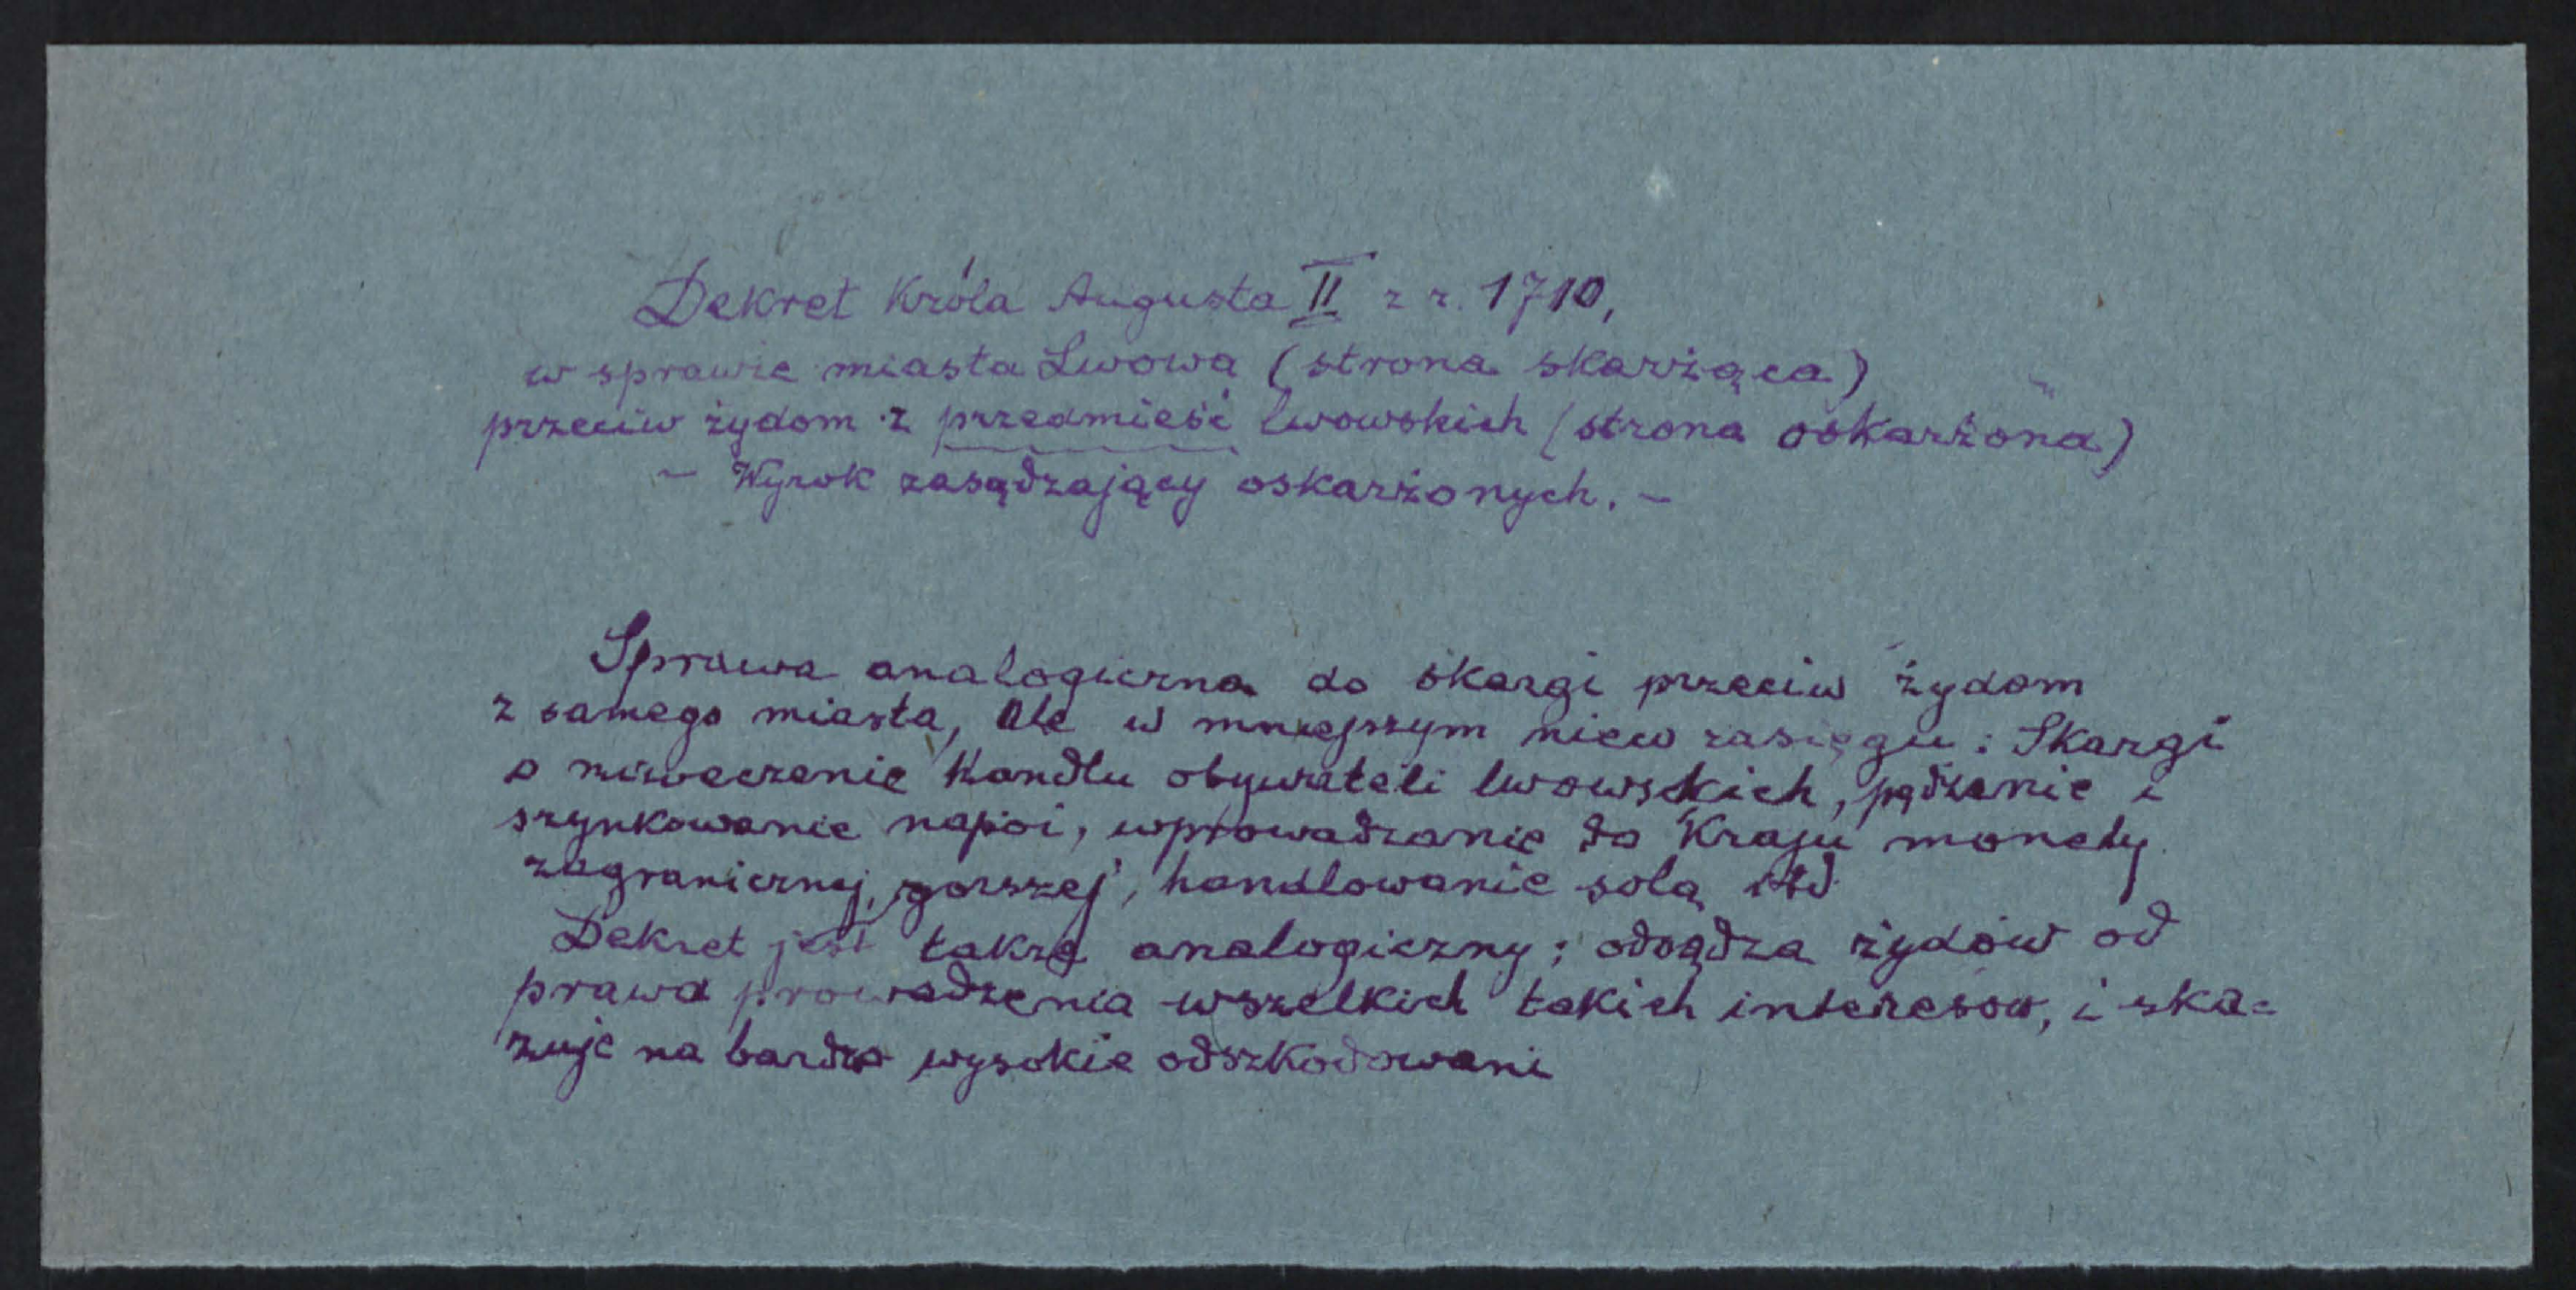 Dekret Króla Augusta II z r. 1710,
w sprawie miasta Lwowa (strona skarżąca)
przeciw żydom z przedmieść lwowskich (strona oskarżona)
- Wyrok zasądzający oskarżonych. -
Sprawa analogiczna do skargi przeciw żydom
z samego miasta, ale w mniejszym nieco zasięgu: Skargi
o niweczenie handlu obywateli lwowskich, pędzenie i
szynkowanie napoi, wprowadzanie do Kraju monety
zagranicznej, gorszej, handlowanie solą itd.
Dekret jest także analogiczny; odsądza żydów od
prawa prowadzenia wszelkich takich interesów, i ska=
zuje na bardzo wysokie odszkodowani